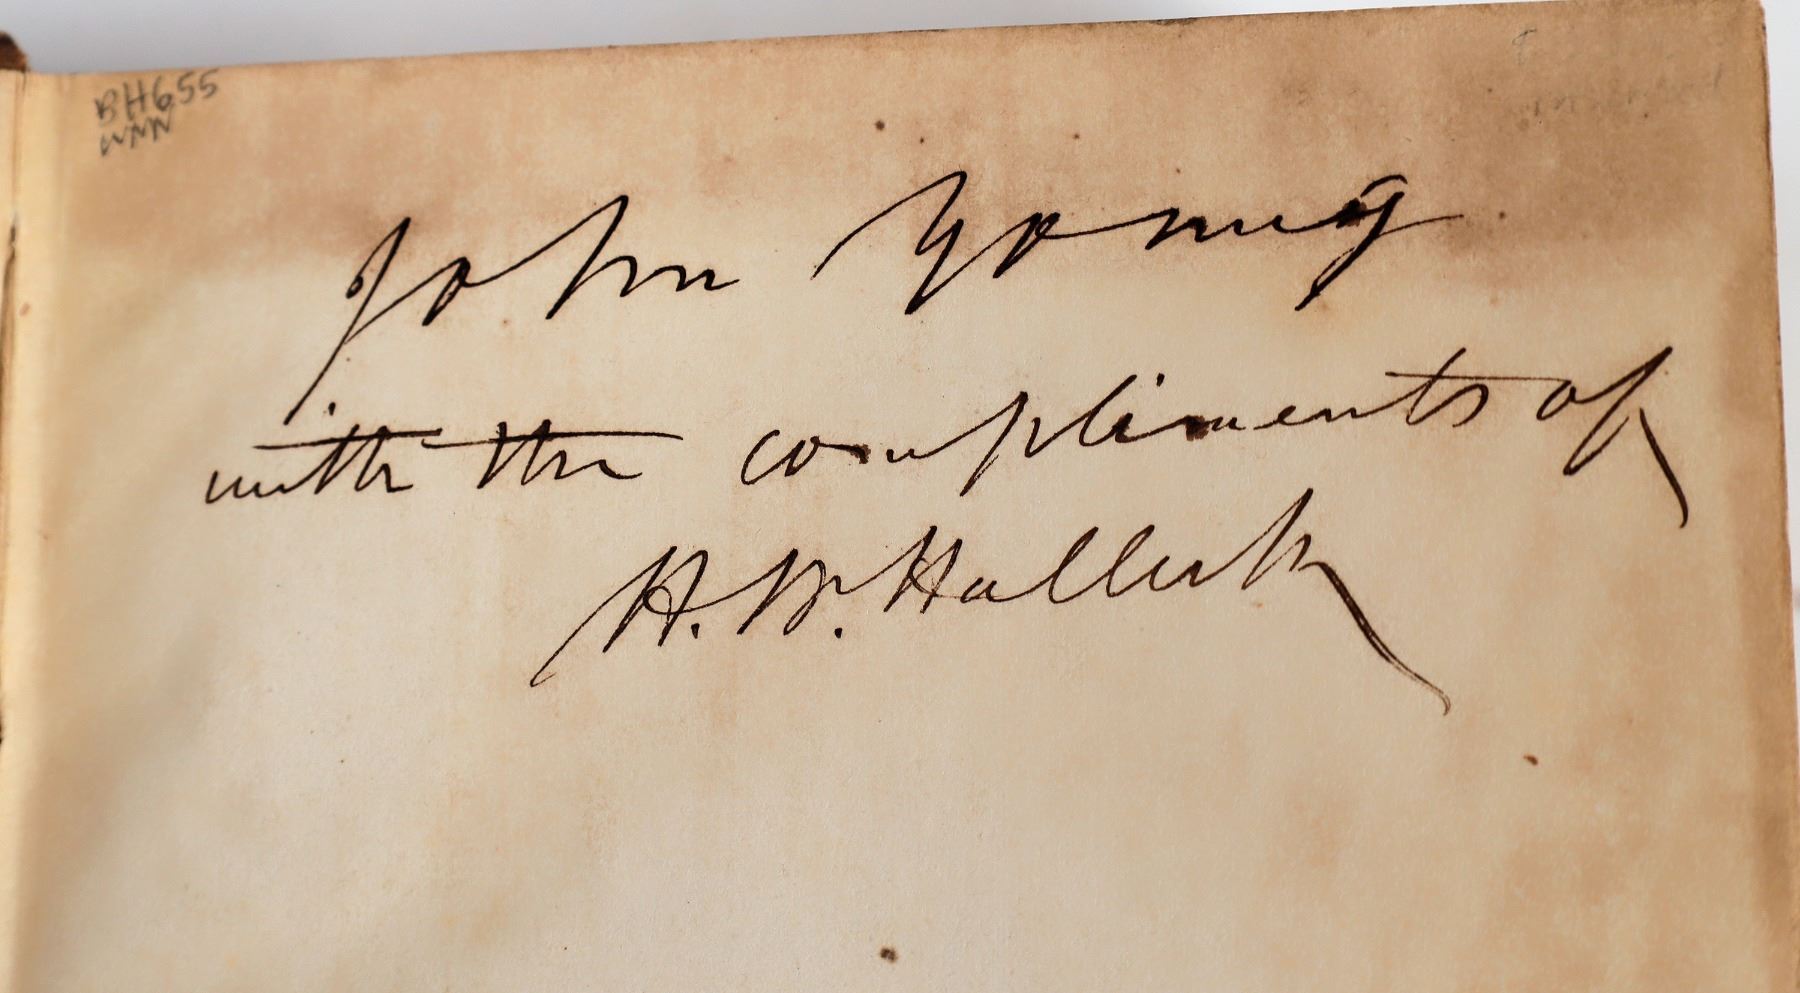 BH655
John Young
with the compliments of
H. W. Halleck